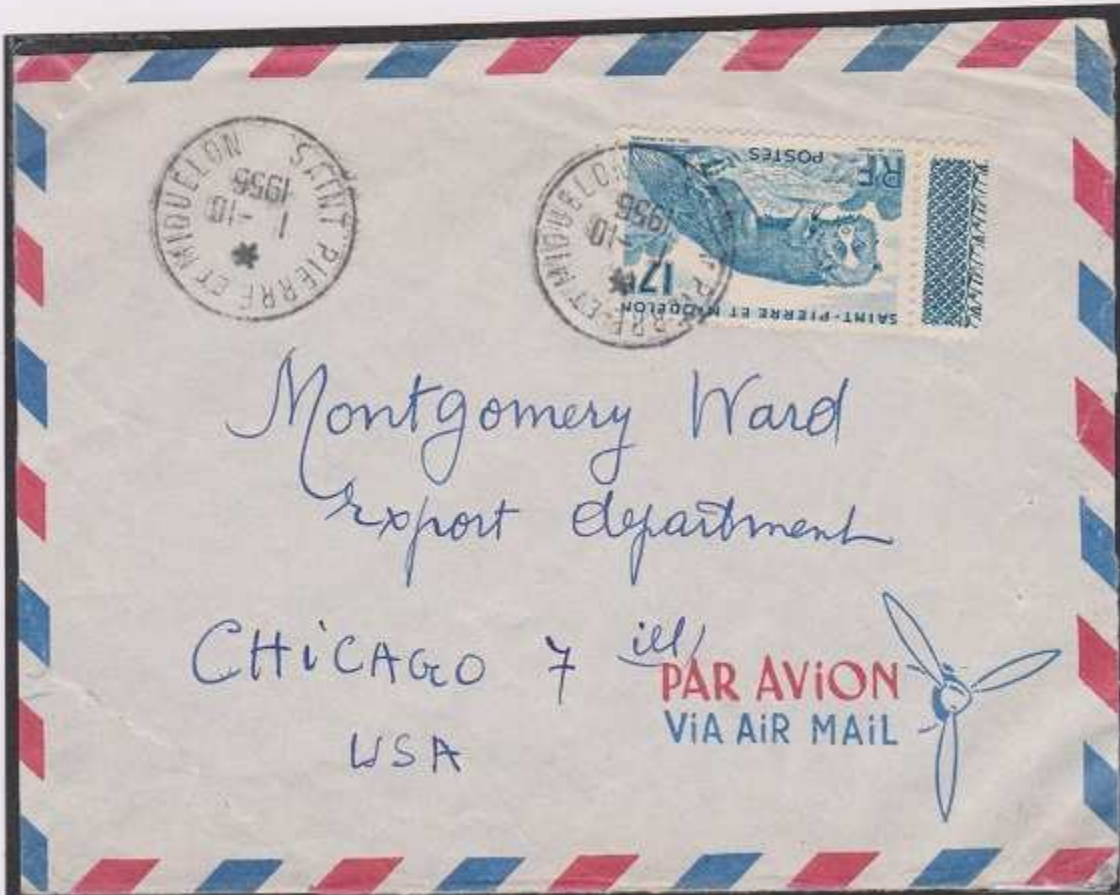 SAINT PIERRE ET MIQUELON
1 -10
1956
SAINT-PIERRE ET MIQUELON
17F
RF
POSTES
Montgomery Ward
Export department
CHiCAGO 7 ill
USA
PAR AViON
ViA AiR MAiL